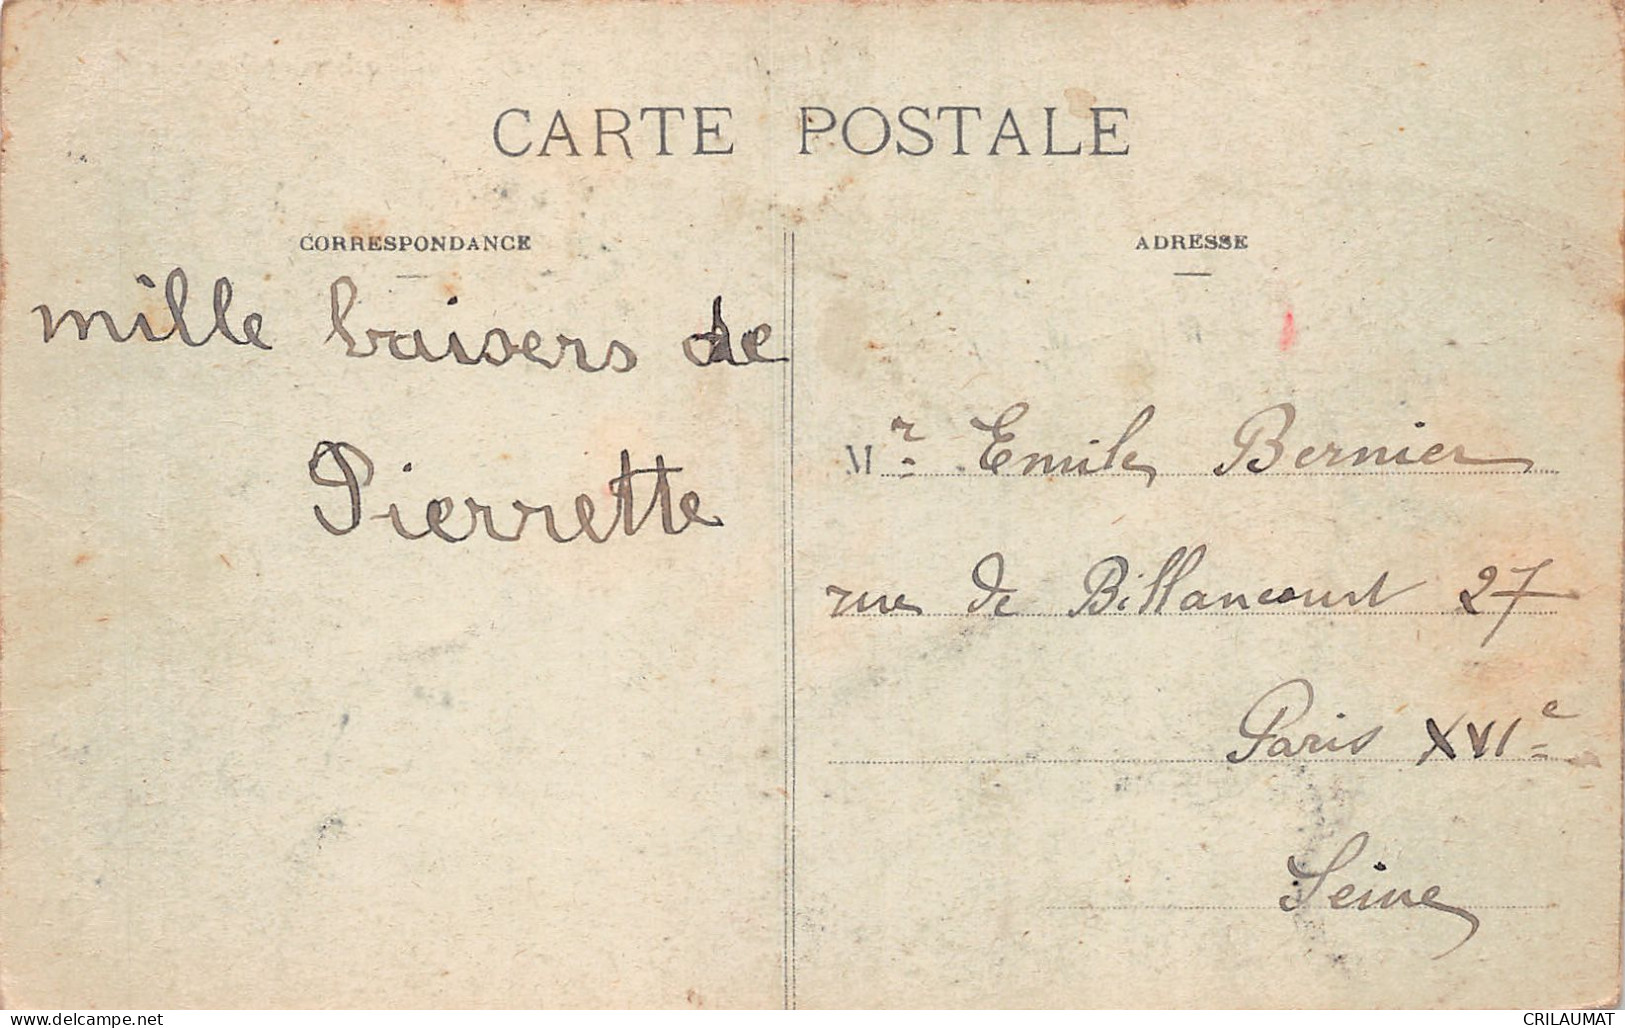 CARTE POSTALE
CORRESPONDANCE
mille baisers de
Pierrette
ADRESSE
Mr Emile Bernier
rue de Billancourt 27
Paris XVIe
Seine
www.delcampe.net
CRILAUMAT